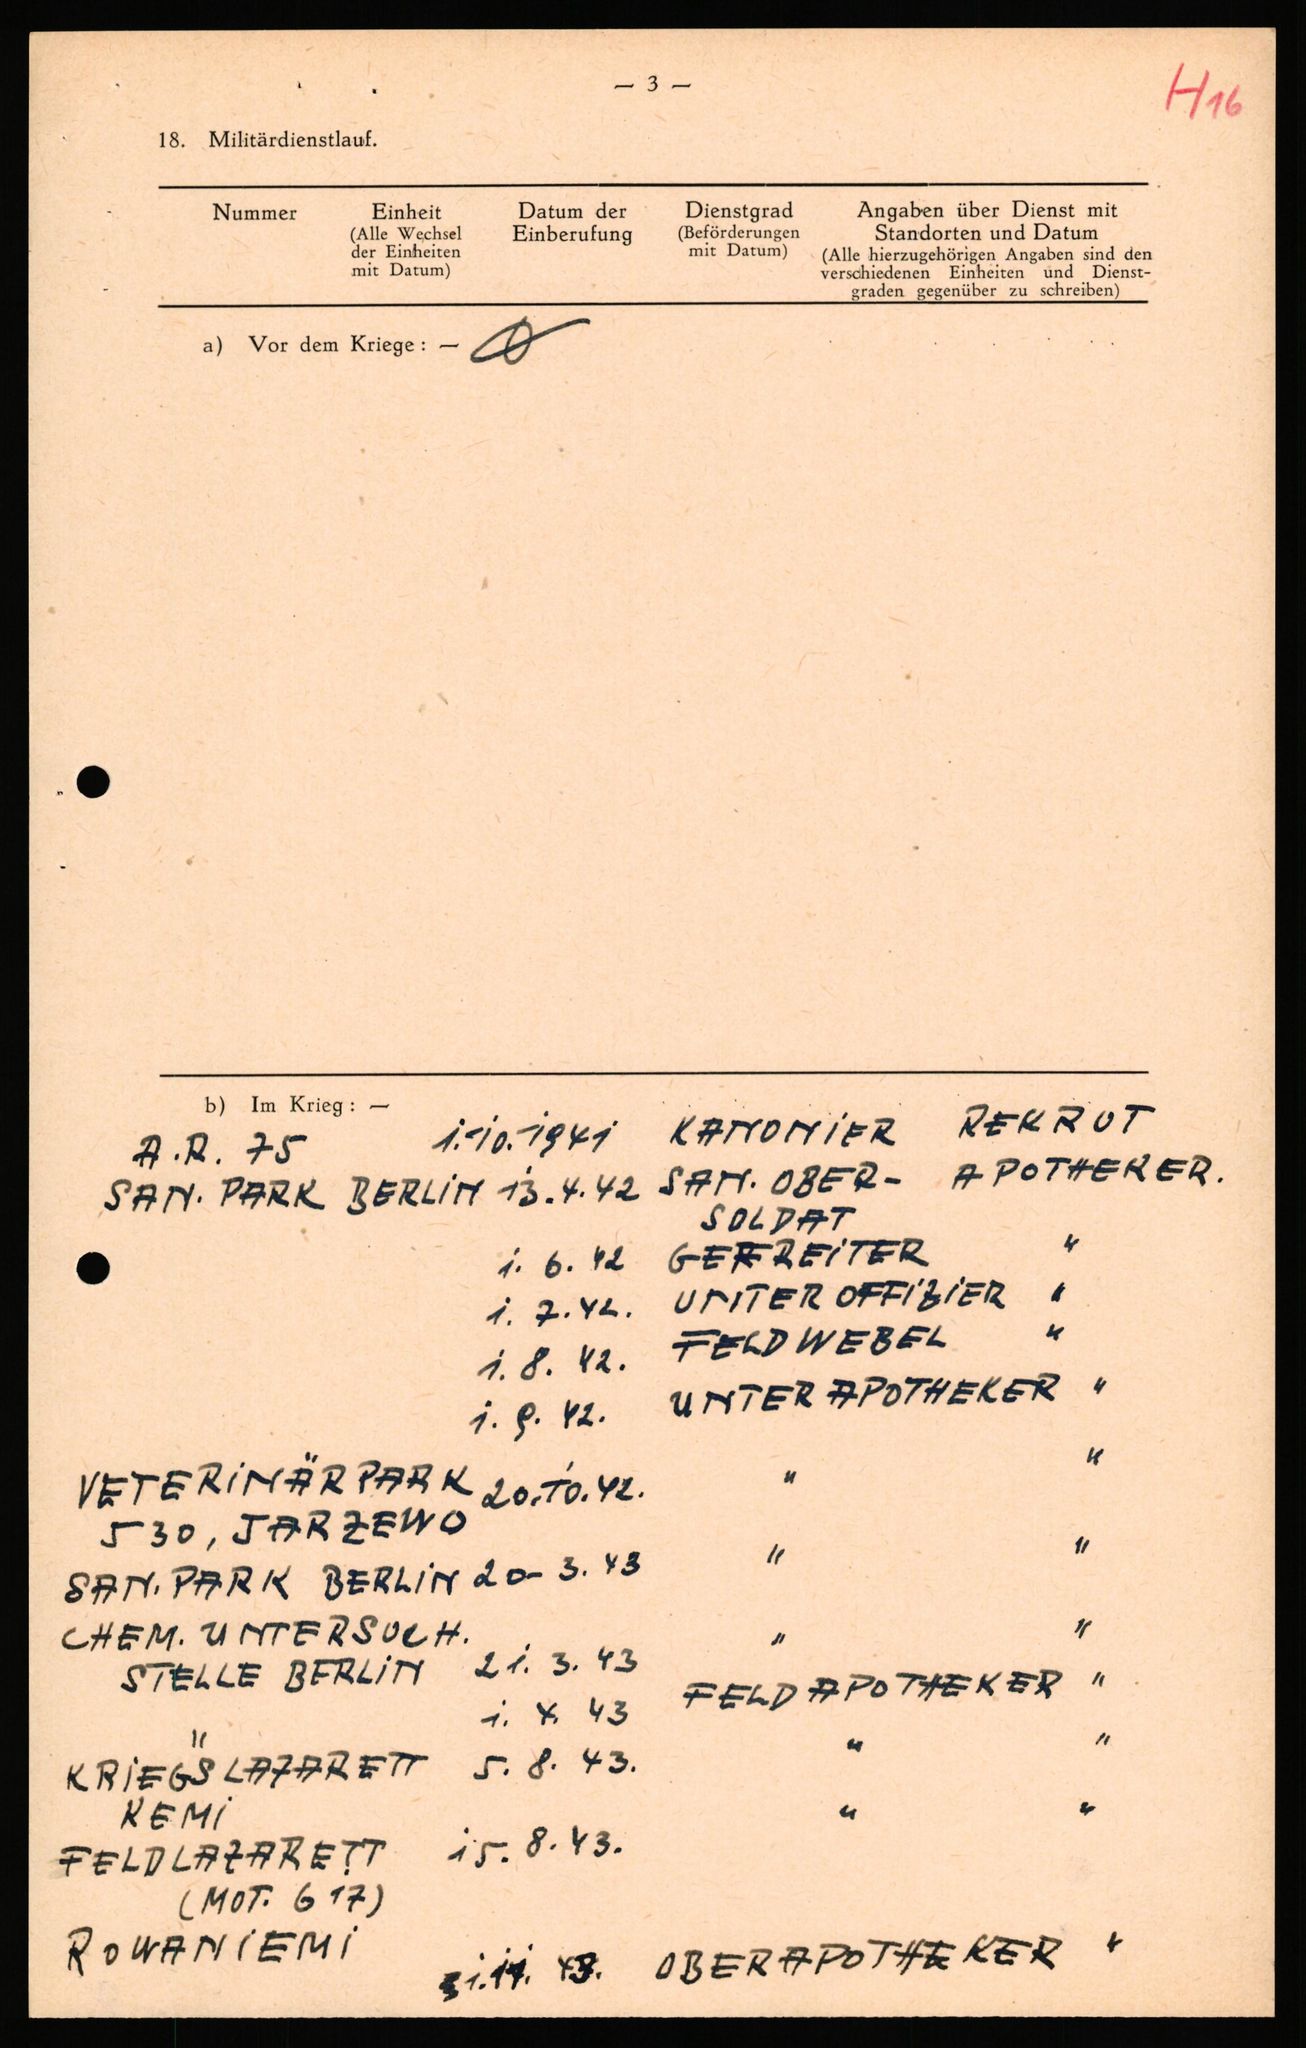 — 3 —
H16
18. Militärdienstlauf.
Nummer Einheit Datum der Dienstgrad Angaben über Dienst mit
(Alle Wechsel Einberufung (Beförderungen Standorten und Datum
der Einheiten mit Datum) (Alle hierzugehörigen Angaben sind den
mit Datum) verschiedenen Einheiten und Dienst-
graden gegenüber zu schreiben)
a) Vor dem Kriege: —
b) Im Krieg: —
A.R. 75 1.10.1941 KANONIER REKRUT
SAN. PARK BERLIN 13.4.42 SAN. OBER- APOTHEKER.
SOLDAT
1. 6. 42 GEFREITER "
1. 7. 42. UNTEROFFIZIER "
1. 8. 42. FELDWEBEL "
1. 9. 42. UNTERAPOTHEKER "
VETERINÄRPARK 20.10.42. " "
530, JARZEWO
SAN. PARK BERLIN 20-3.43 " "
CHEM. UNTERSUCH. " "
STELLE BERLIN 21.3.43
" 1. 4. 43 FELDAPOTHEKER "
KRIEGSLAZARETT 5. 8. 43. " "
KEMI
FELDLAZARETT 15. 8. 43. " "
(MOT. 617)
ROWANIEMI
OBERAPOTHEKER "